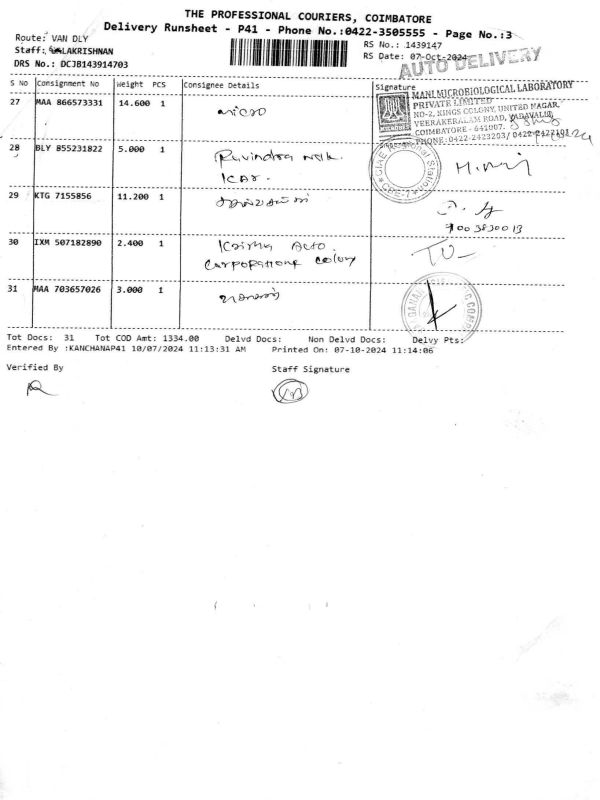 THE PROFESSIONAL COURIERS, COIMBATORE
Delivery Runsheet - P41 - Phone No.:0422-3505555 - Page No.:3
Route: VAN DLY
RS No.: 1439147
Staff: LAKRISHNAN
RS Date: 07-Oct-2024
DRS No.: DCJB143914703
AUTO DELIVERY
S No Consignment No Weight PCS Consignee Details Signature
MANI MICROBIOLOGICAL LABORATORY
PRIVATE LIMITED
NO-2, KINGS COLONY, UNITED NAGAR,
VEERAKERALAM ROAD, VADAVALLI,
COIMBATORE - 641007.
PHONE: 0422-2423203/
27 MAA 866573331 14.600 1 micro
28 BLY 855231822 5.000 1 Ravindra
ICAR.
CIAE Regional Station
CBE-7
29 KTG 7155856 11.200 1
30 IXM 507182890 2.400 1 Auto
Corporation colony
31 MAA 703657026 3.000 1
Tot Docs: 31 Tot COD Amt: 1334.00 Delvd Docs: Non Delvd Docs: Delvy Pts:
Entered By :KANCHANAP41 10/07/2024 11:13:31 AM Printed On: 07-10-2024 11:14:06
Verified By Staff Signature